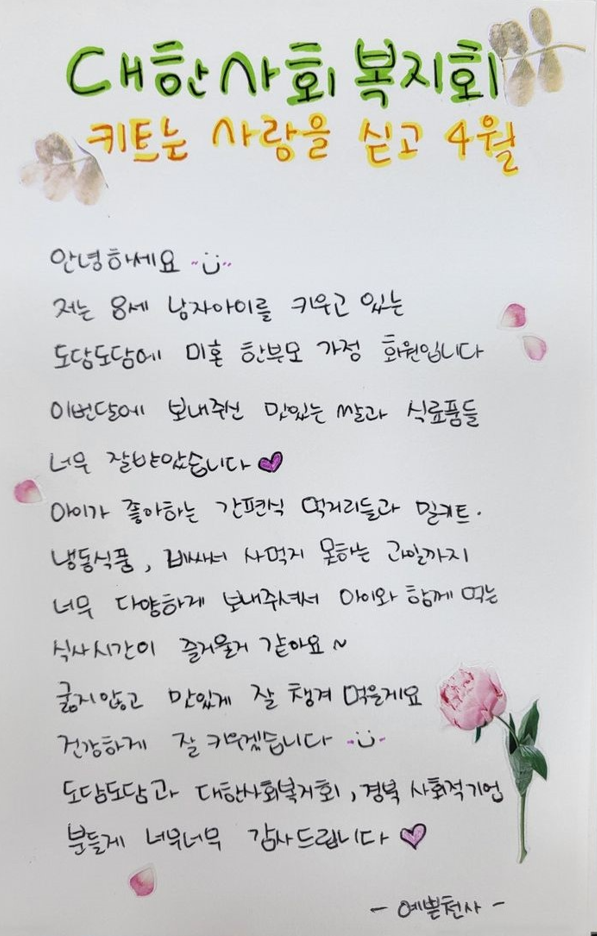 대한사회복지회
키트는 사랑을 싣고 4월
안녕하세요
저는 8세 남자아이를 키우고 있는
도담도담에 미혼 한부모 가정 회원입니다
이번달에 보내주신 맛있는 쌀과 식료품들
너무 잘받았습니다
아이가 좋아하는 간편식 먹거리들과 밀키트.
냉동식품, 비싸서 사먹지 못하는 과일까지
너무 다양하게 보내주셔서 아이와 함께 먹는
식사시간이 즐거울거 같아요~
굶지않고 맛있게 잘 챙겨 먹을게요
건강하게 잘 키우겠습니다
도담도담과 대한사회복지회, 경북 사회적기업
분들께 너무너무 감사드립니다
- 예쁜천사 -